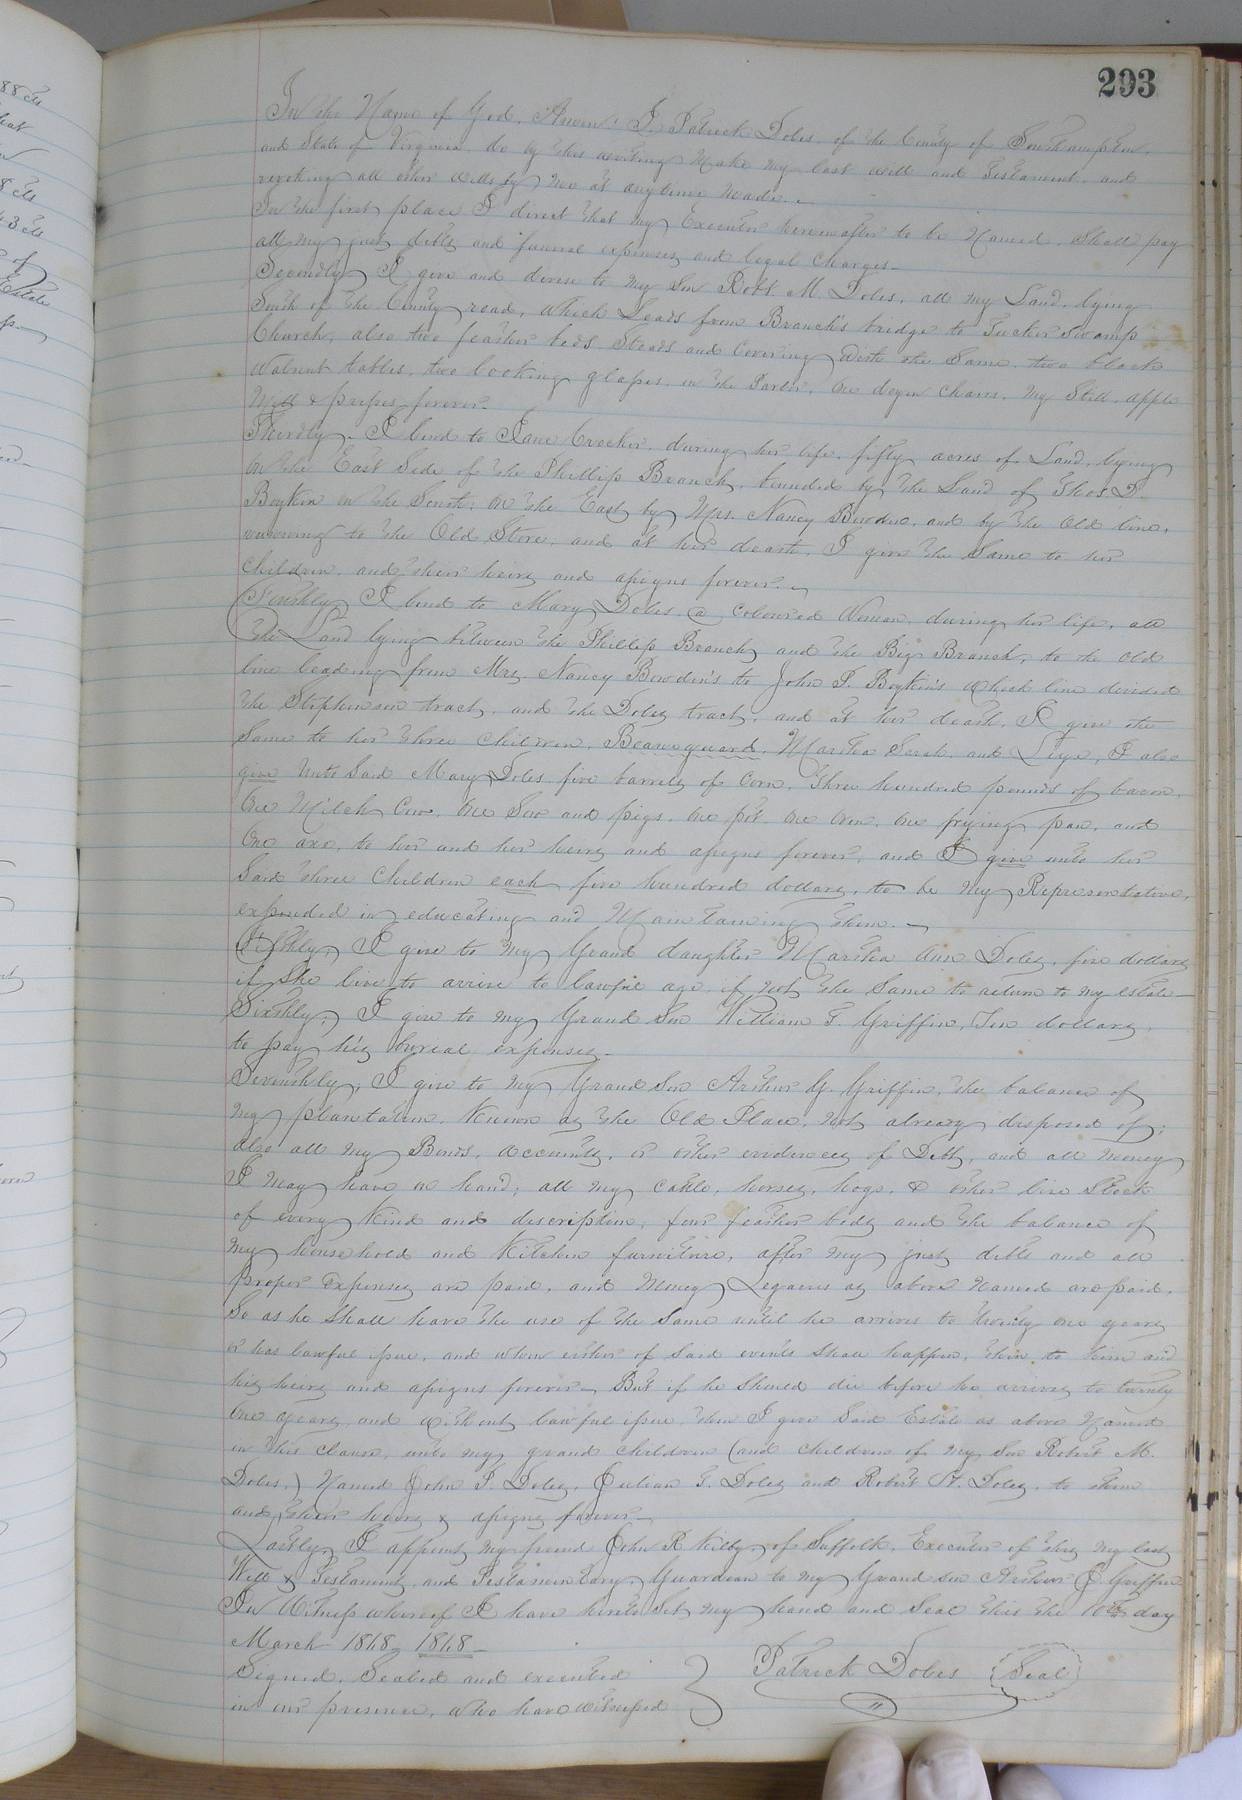 293
In the Name of God, Amen: I, Patrick Doles, of the County of Southampton,
and State of Virginia, do by this writing make my last will and Testament, and
revoking all other Wills by me at anytime made.
In the first place I direct that my Executor hereinafter to be Named, shall pay
all my just debts and funeral expenses and legal charges.
Secondly, I give and devise to my Son Robt. M. Doles, all my Land, lying
South of the County road, which Leads from Branch's bridge to Tucker Swamp
Church, also two feather beds Steads and Covering with the Same, two black
Walnut tables, two looking glasses in the Parlor, one dozen chairs, my Still, apple
Mill & presses forever.
Thirdly. I lend to Jane Crocker, during her life, fifty acres of Land, lying
on the East Side of the Phillips Branch, bounded by the Land of Thos D.
Boykin on the South; on the East by Mrs. Nancy Bowden, and by the Old line,
running to the Old Store, and at her death, I give the Same to her
Children, and their heirs and assigns forever.
Fourthly, I lend to Mary Doles, a coloured Woman, during her life, all
the Land lying between the Phillips Branch and the Big Branch, to the old
line leading from Mrs. Nancy Bowden's to John P. Boykin's which line divided
the Stephenson tract, and the Doles tract, and at her death, I give the
Same to her three Children, Beauguard, Martha Sarah, and I also
give unto Said Mary Doles five barrels of Corn, three hundred pounds of bacon,
One Milch Cow, One Sow and pigs, One pot One Oven, One frying pan, and
One axe, to her and her heirs and assigns forever, and I give unto her
Said three Children each five hundred dollars, to be my Representative,
expended in educating and Maintaining them.
Fifthly, I give to my Grand daughter Martha Ann Doles, five dollars
if she live to arrive to lawful age, if not the Same to return to my estate
Sixthly, I give to my Grand Son William T. Griffin, Ten dollars,
to pay his burial expenses.
Seventhly, I give to my Grand Son Arthur G. Griffin, the balance of
my plantation, Known as the Old Place, not already disposed of;
also all my Bonds, accounts, or other evidences of Debts, and all money
I may have on hand; all my cattle, horses, hogs, & other live Stock
of every Kind and description, four feather beds and the balance of
my household and Kitchen furniture, after my just debts and all
proper Expenses are paid, and Money Legacies as above Named are paid.
So as he Shall have the use of the Same until he arrives to twenty one years
or has lawful issue, and when either of Said events Shall happen, then to him and
his heirs and assigns forever. But if he Should die before he arrives to twenty
One years, and without lawful issue, then I give Said Estate as above Named
in this clause, unto my grand children (and children of my Son Robert M.
Doles,) Named John P. Doles, Julian T. Doles and Robert H. Doles, to them
and their heirs & assigns forever.
Lastly, I appoint my friend John R Kilby of Suffolk, Executor of this my last
Will & Testament, and Testamentary Guardian to my Grand son Arthur G. Griffin
In Witness whereof I have hereto Set my hand and Seal this the 10th day
March 1868 1868
Signed, Sealed and executed
in our presence, who have witnessed
Patrick Doles Seal